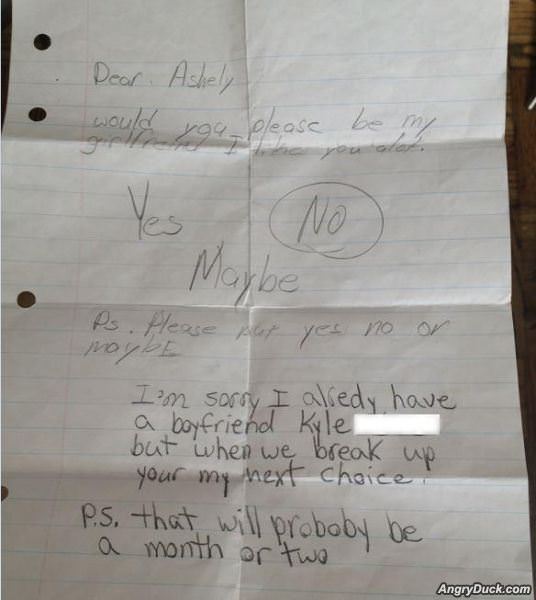 Dear. Ashely
would you please be my
girlfriend I like you alot.
Yes
No
Maybe
Ps. Please put yes no or
maybE
I'm sorry I alredy have
a boyfriend Kyle
but when we break up
your my next choice.
P.S. that will proboby be
a month or two
AngryDuck.com